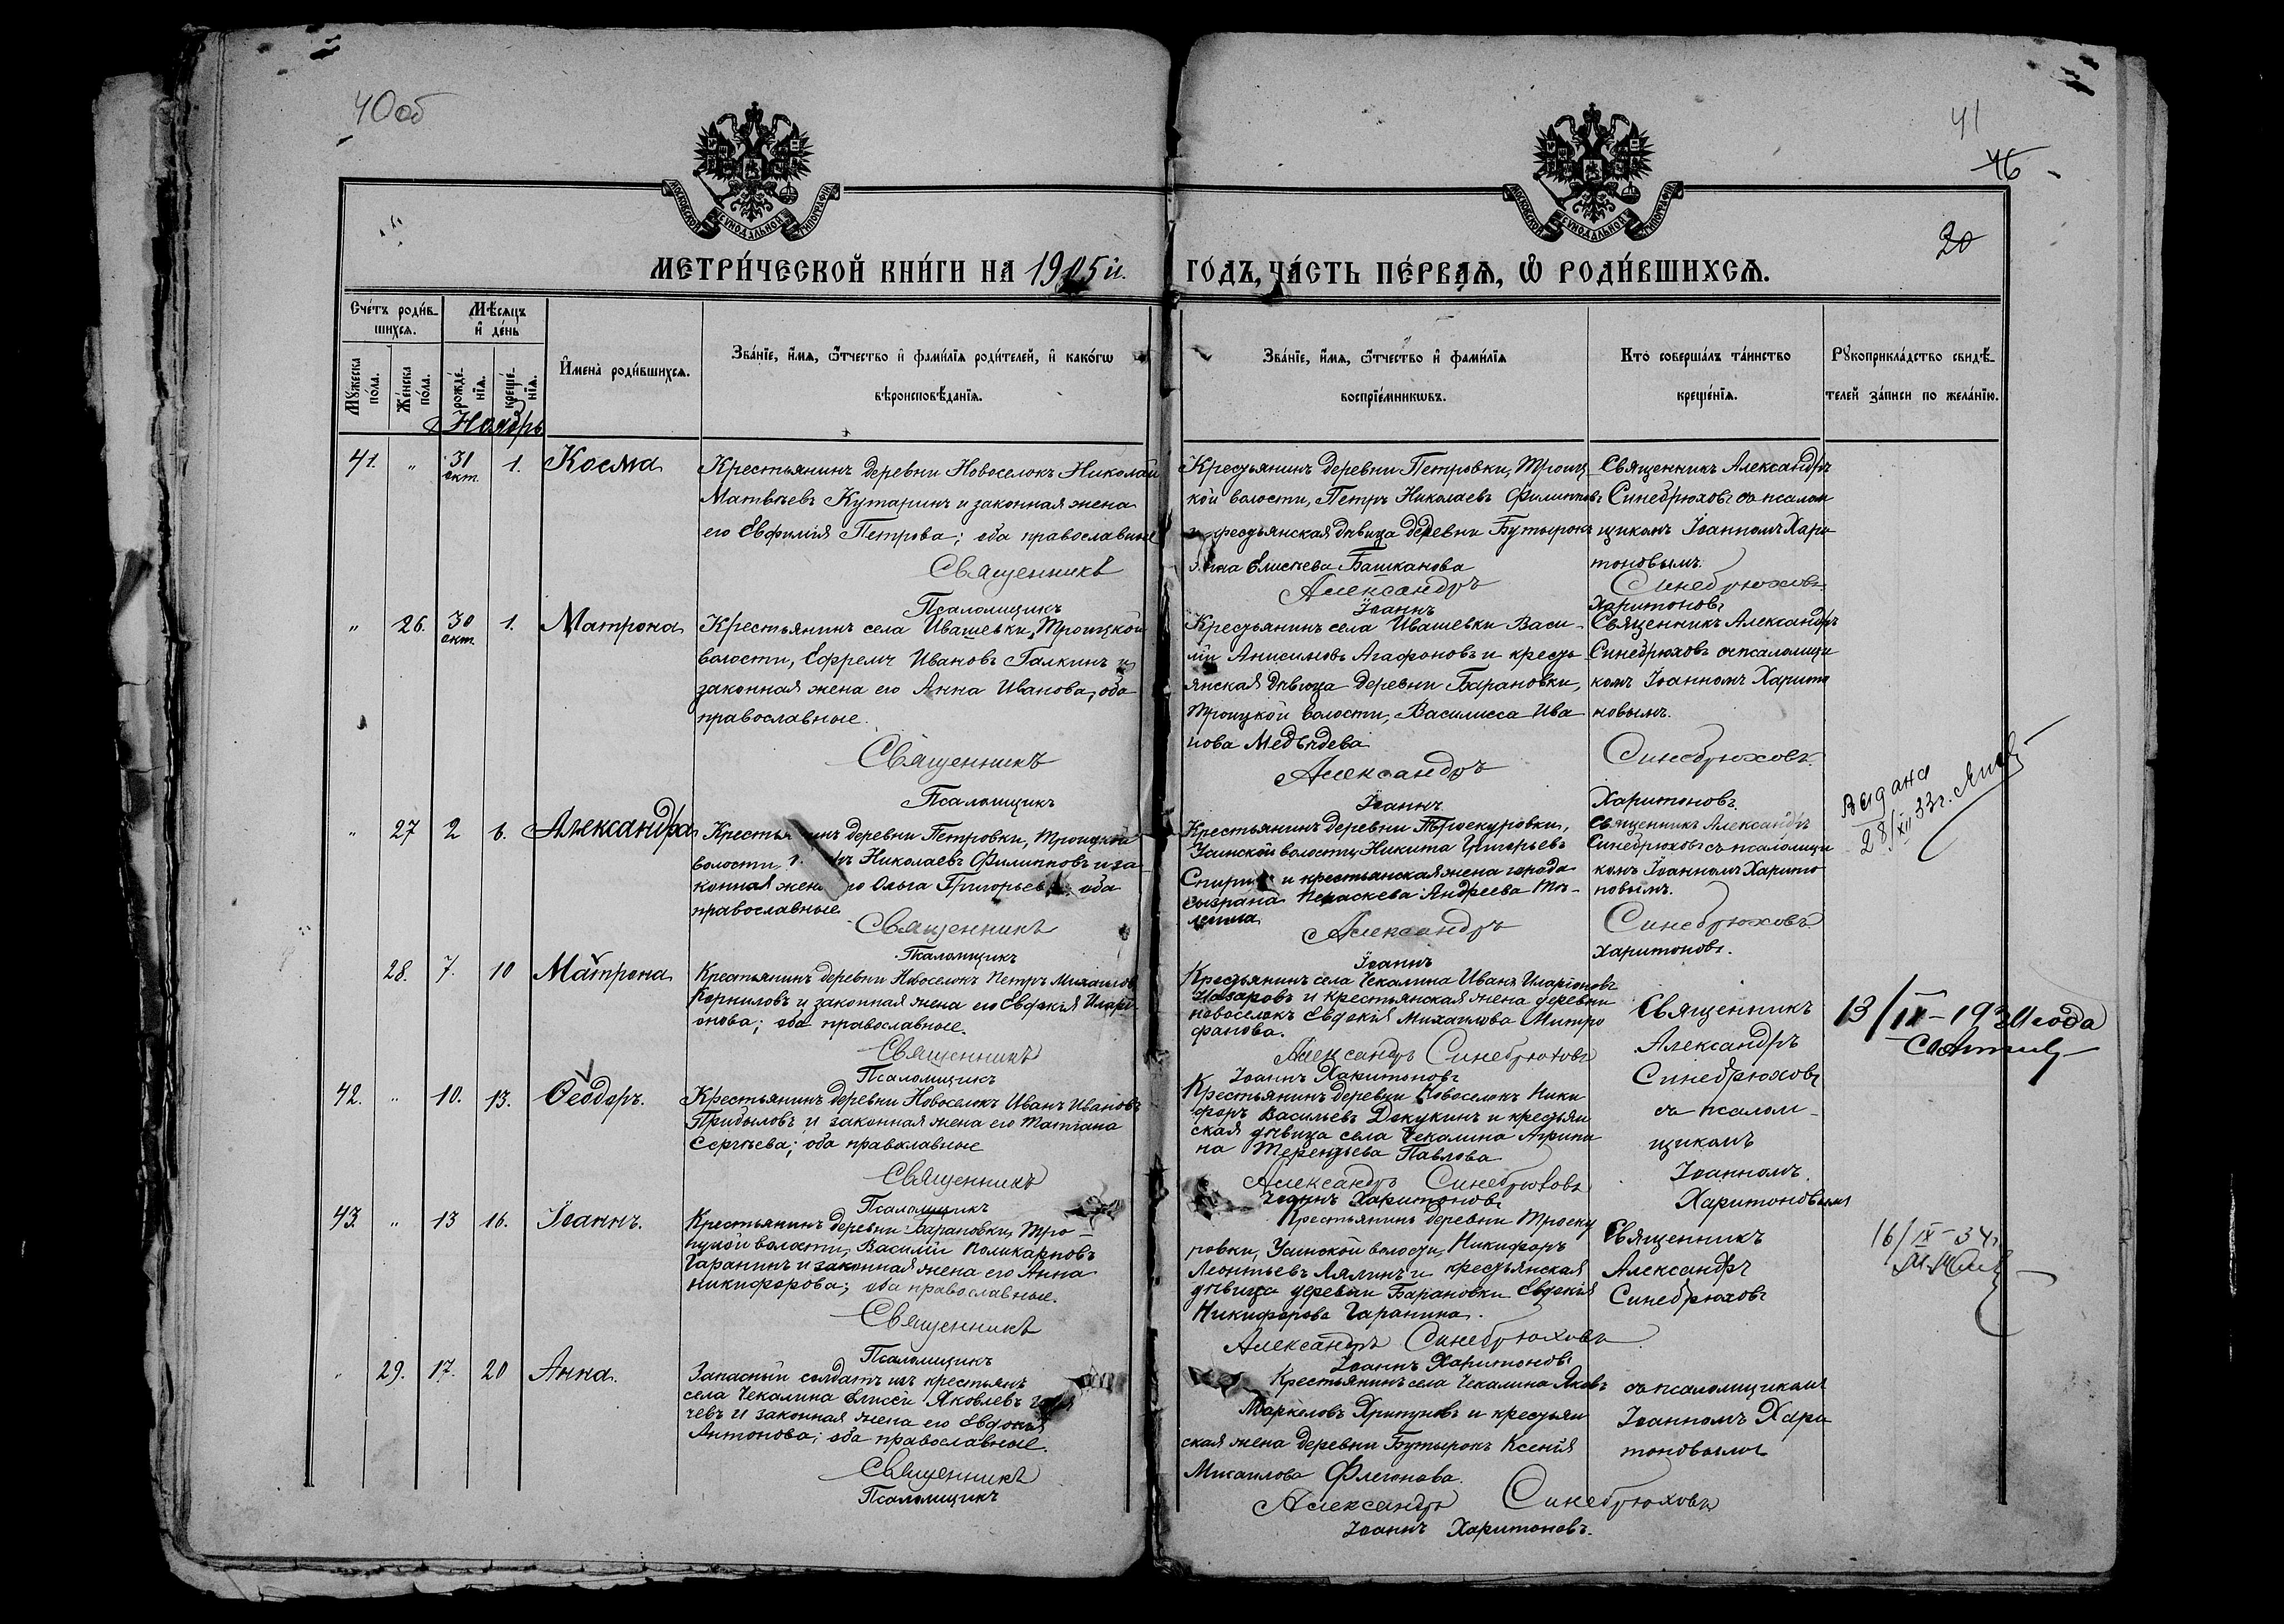 40об
41
46
20
МОСКОВСКОЙ СѴНОДАЛЬНОЙ ТИПОГРАФІИ
МОСКОВСКОЙ СѴНОДАЛЬНОЙ ТИПОГРАФІИ
МЕТРИ́ЧЕСКОЙ КНИ́ГИ НА 1905й.
ГОДЪ, ЧА́СТЬ ПЕ́РВАѦ, Ѿ РОДИ́ВШИХСѦ.
Сче́тъ роди́в-
шихсѧ.
Мѣсѧцъ
и҆ де́нь
Мꙋ́жеска
по́ла.
Же́нска
по́ла.
рожде́-
нїѧ.
креще́-
нїѧ.
И҆мена̀ роди́вшихсѧ.
Зва́нїе, и҆́мѧ, ѻ҆́тчество и҆ фами́лїѧ роди́телей, и҆ како́гѡ
вѣроисповѣ́данїѧ.
Зва́нїе, и҆́мѧ, ѻ҆́тчество и҆ фами́лїѧ
воспрїе́мникѡвъ.
Кто̀ соверша́лъ та́инство
креще́нїѧ.
Рꙋкоприкла́дство свидѣ́-
телей за́писи по жела́нїю.
Ноябрь
41. " 31 окт. 1. Косма
Крестьянинъ деревни Новоселокъ Николай
Матвѣевъ Кутаринъ и законная жена
его Евфимія Петрова; оба православные
Священникъ
Псаломщикъ
Крестьянинъ деревни Петровки, Троиц
кой волости, Петръ Николаевъ Филипповъ
и крестьянская дѣвица деревни Бутырокъ
Елисѣева Башканова
Александръ
Іоаннъ
Священникъ Александръ
Синебрюховъ съ псалом
щикомъ Іоанномъ Хари
тоновымъ.
Синебрюховъ
Харитоновъ
" 26. 30 окт. 1. Матрона
Крестьянинъ села Ивашевки, Троицкой
волости, Ефремъ Ивановъ Галкинъ и
законная жена его Анна Иванова, оба
православные.
Священникъ
Псаломщикъ
Крестьянинъ села Ивашевки Васи-
лій Анисимовъ Агафоновъ и кресть
янская дѣвица деревни Барановки,
Троицкой волости, Василисса Ива
нова Медвѣдева
Александръ
Іоаннъ
Священникъ Александръ
Синебрюховъ съ псаломщи
комъ Іоанномъ Харито
новымъ.
Синебрюховъ
Харитоновъ.
" 27 2 6. Александра
Крестьянинъ деревни Петровки, Троицкой
волости, Николаевъ Филипповъ и за-
конная жена его Ольга Григорьева оба
православные
Священникъ
Псаломщикъ
Крестьянинъ деревни Троекуровки,
Усинской волости Никита Григорьевъ
и крестьянская жена города
Сызрана Параскева Андреева
Александръ
Іоаннъ
Священникъ Александръ
Синебрюховъ съ псаломщи
комъ Іоанномъ Харито
новымъ.
Синебрюховъ
Харитоновъ.
Выдана
28/XII 33г.
28. 7. 10 Матрона
Крестьянинъ деревни Новоселокъ Петръ Михайловъ
Корниловъ и законная жена его Евдокія Иларі
онова; оба православные.
Священникъ
Псаломщикъ
Крестьянинъ села Чекалина Иванъ Иларіоновъ
Назаровъ и крестьянская жена деревни
Новоселокъ Евдокія Михайлова Митро
фанова.
Александръ Синебрюховъ
Іоаннъ Харитоновъ
Священникъ
Александръ
Синебрюховъ
съ псалом-
щикомъ
Іоанномъ
Харитоновымъ
13/IX-1934 года
42. " 10. 13. Ѳеодоръ.
Крестьянинъ деревни Новоселокъ Иванъ Ивановъ
Прибыловъ и законная жена его Татіана
Сергѣева; оба православные
Священникъ
Псаломщикъ
Крестьянинъ деревни Новоселокъ Ники
форъ Васильевъ Докукинъ и крестьян
ская дѣвица села Чекалина Агрипи
на Терентьева Павлова
Александръ Синебрюховъ
Іоаннъ Харитоновъ
43. " 13 16. Іоаннъ.
Крестьянинъ деревни Барановки, Тро-
ицкой волости, Василій Поликарповъ
Гаранинъ и законная жена его Анна
Никифорова; оба православные.
Священникъ
Псаломщикъ
Крестьянинъ деревни Троеку
ровки, Усинской волости, Никифоръ
Леонтьевъ Лялинъ и крестьянская
дѣвица деревни Барановки Евдокія
Никифорова Гаранина.
Александръ Синебрюховъ
Іоаннъ Харитоновъ
Священникъ
Александръ
Синебрюховъ
16/IX-34г.
" 29. 17. 20 Анна.
Запасный солдатъ изъ крестьянъ
села Чекалина Елисѣй Яковлевъ
чевъ и законная жена его Евдокія
Антонова; оба православные.
Священникъ
Псаломщикъ
Крестьянинъ села Чекалина Яковъ
Маркеловъ Хрипуновъ и крестьян
ская жена деревни Бутырокъ Ксенія
Михаилова Флегонова.
Александръ Синебрюховъ
Іоаннъ Харитоновъ.
съ псаломщикомъ
Іоанномъ Хари
тоновымъ